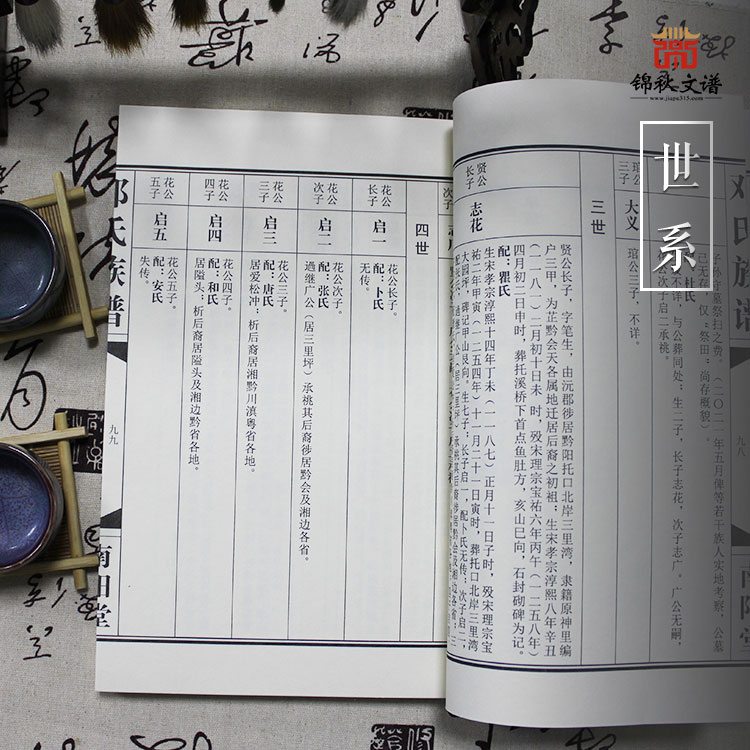 锦秋文谱
www.jiapu315.com
世系
子孙守墓祭扫之费。（二〇二一年五月俾等若干族人实地考察，公墓
已无存，仅“祭田”尚存概貌）。
配：杜氏
不详，与公葬同处；生二子，长子志花，次子志广，广公无嗣，
次子启二承祧。
琯公
三子
大义
琯公三子，不详。
三世
贤公
长子
志花
贤公长子，字笔生，由沅郡徙居黔阳托口北岸三里湾，隶籍原神里编
户三甲，为芷黔会天各属地迁居后裔之初祖，生宋孝宗淳熙八年辛丑
（一一八一）二月初十日未时，殁宋理宗宝祐六年丙午（一二五八年）
四月初二日申时，葬托溪桥下首点鱼肚方，亥山巳向，石封砌碑为记。
配：瞿氏
生宋孝宗淳熙十四年丁未（一一八七）正月十一日子时，殁宋理宗宝
祐二年甲寅（一二五四年）十一月二十一日寅时，葬托口北岸三里湾
大园坪，碑记甲山艮向。生七子：长子启一，配卜氏无传；次子启二，
四世
花公
长子
启一
花公长子。
配：卜氏
无传。
花公
次子
启二
花公次子。
配：张氏
過继广公（居三里坪）承祧其后裔徙居黔会及湘边各省。
花公
三子
启三
花公三子。
配：唐氏
居爱松冲；析后裔居湘黔川滇粤省各地。
花公
四子
启四
花公四子。
配：和氏
居隘头；析后裔居隘头及湘边黔省各地。
花公
五子
启五
花公五子。
配：安氏
失传。
氏族谱
九九
南阳堂